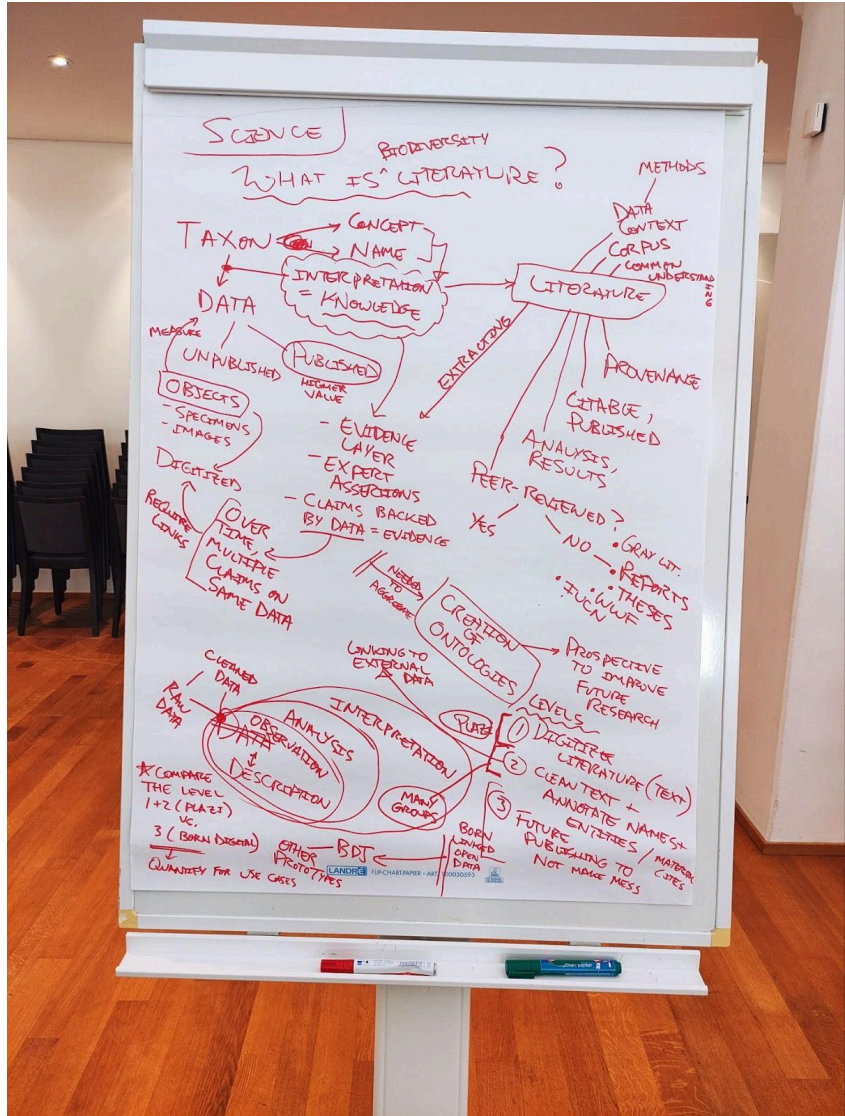 SCIENCE
BIODIVERSITY
WHAT IS ^ LITERATURE?
METHODS
DATA
CONTEXT
CORPUS
COMMON
UNDERSTANDING
TAXON
CONCEPT
NAME
INTERPRETATION
= KNOWLEDGE
LITERATURE
DATA
MEASURE
UNPUBLISHED
PUBLISHED
HIGHER
VALUE
EXTRACTING
PROVENANCE
CITABLE,
PUBLISHED
ANALYSIS,
RESULTS
PEER-REVIEWED?
YES
NO
• GRAY LIT.
• REPORTS
• THESES
• WWF
• IUCN
OBJECTS
- SPECIMENS
- IMAGES
DIGITIZED
REQUIRE
LINKS
- EVIDENCE
LAYER
- EXPERT
ASSERTIONS
- CLAIMS BACKED
BY DATA = EVIDENCE
OVER
TIME,
MULTIPLE
CLAIMS ON
SAME DATA
NEEDED
TO
AGGREGATE
CREATION
OF
ONTOLOGIES
PROSPECTIVE
TO IMPROVE
FUTURE
RESEARCH
LINKING TO
EXTERNAL
DATA
CLEANED
DATA
RAW
DATA
INTERPRETATION
ANALYSIS
OBSERVATION
DATA
DESCRIPTION
PLAZI
MANY
GROUPS
LEVELS
① DIGITIZE
LITERATURE (TEXT)
② CLEAN TEXT +
ANNOTATE NAMES +
ENTITIES / MATERIAL
CITES
③ FUTURE
PUBLISHING TO
NOT MAKE MESS
BORN
LINKED
OPEN
DATA
BDJ
OTHER
PROTOTYPES
* COMPARE
THE LEVEL
1+2 (PLAZI)
VS.
3 (BORN DIGITAL)
QUANTIFY FOR USE CASES
LANDRÉ FLIP-CHART-PAPIER • ART. 100050593